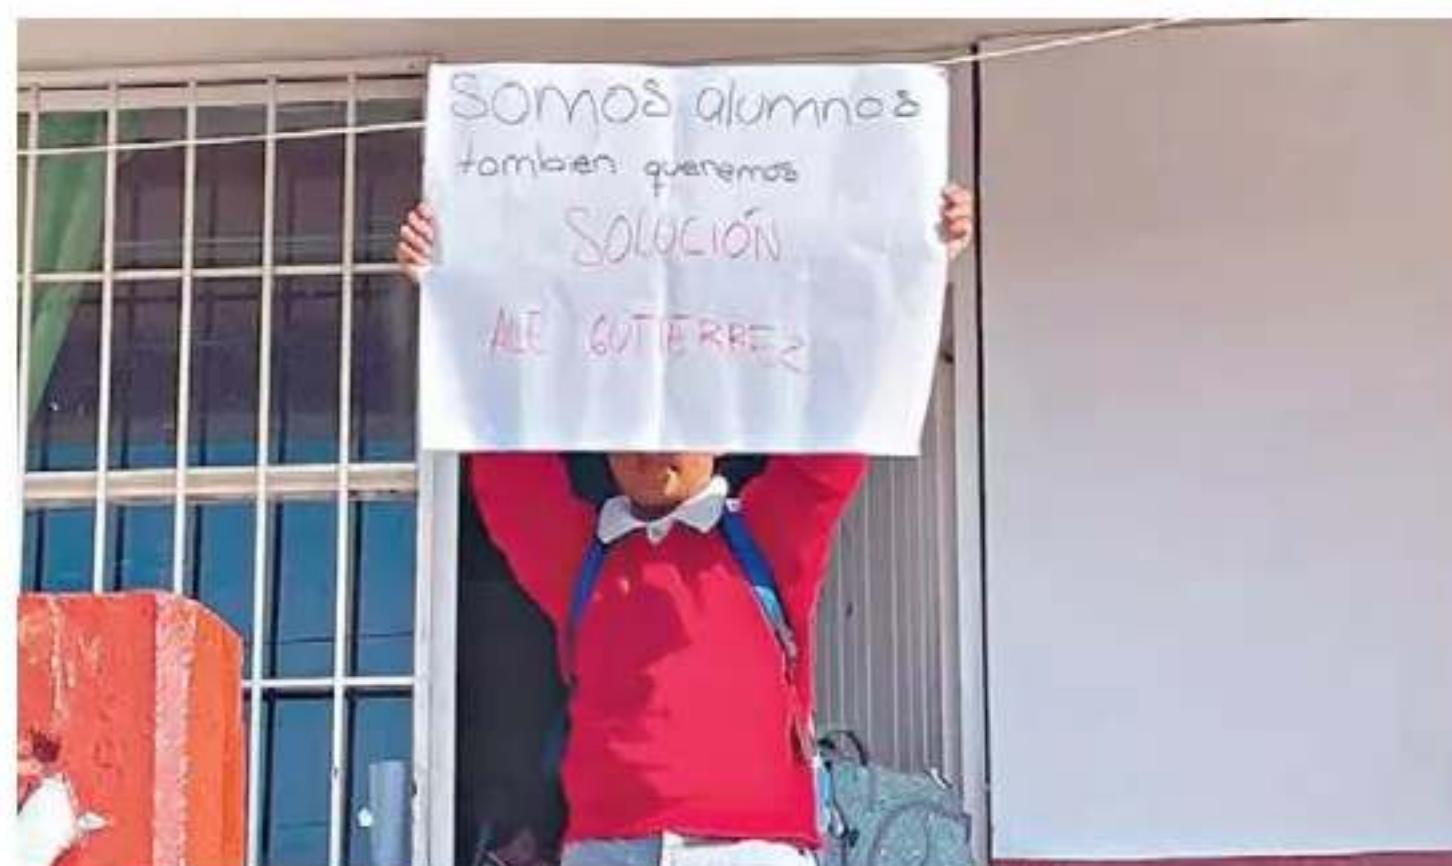 SOMOS alumnos
tambien queremos
SOLUCIÓN
ALE GUTIERREZ